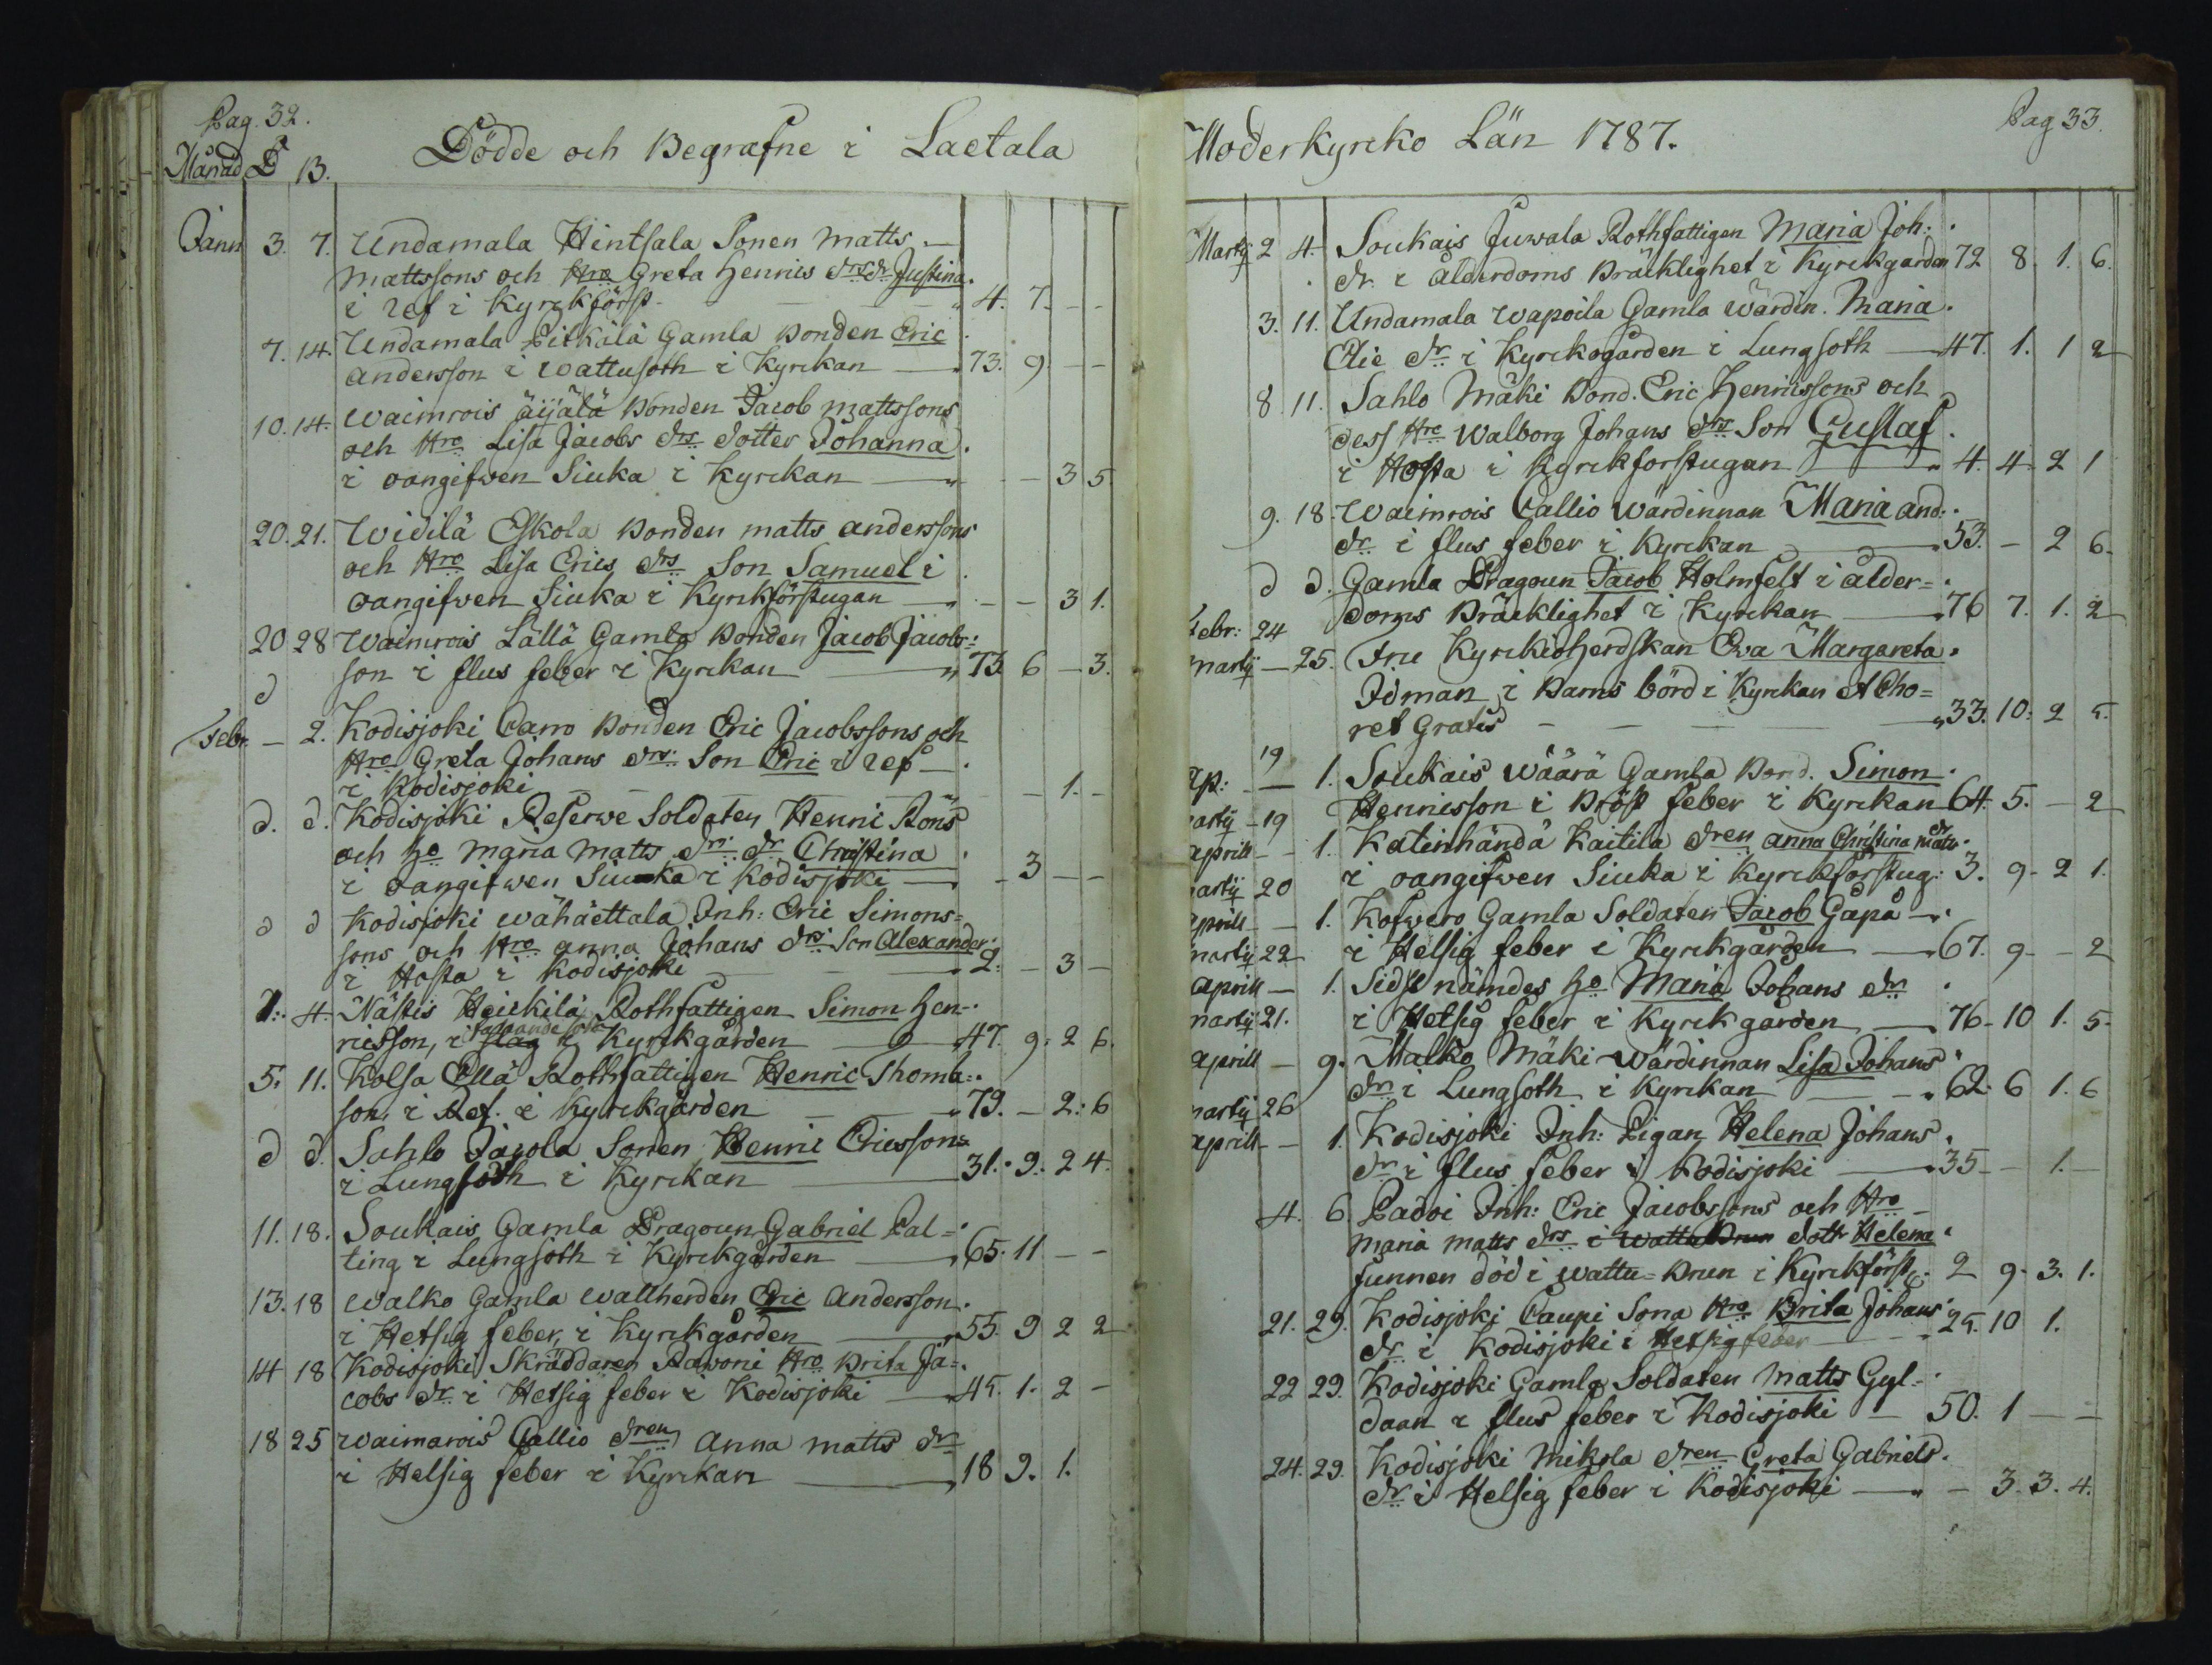 Pag. 32.
Månad D B. Dödde och Begrafne i Laetala
Jann 3. 7. Undamala Hintsala Sonen Matts
Mattssons och Hro Greta Henrics drs dr Justina.
i ref i Kyrckförst. 4. 7. - -
7. 14. Undamala Pitkälä Gamla Bonden Eric
Andersson i wattusoth i Kyrckan 73. 9. - -
10. 14. Waimrois äijälä Bonden Jacob Mattssons
och Hro Lisa Jacobs drs dotter Johanna.
i oangifwen Siuka i Kyrckan - - 3 5.
20. 21. Widilä Eskola Bonden Matts Anderssons
och Hro Lisa Erics drs Son Samuel i
oangifven Siuka i Kyrckförstugan - - 3 1.
20 28 Waimrois Lällä Gamla Bonden Jacob Jacobs=
son i flus feber i Kyrckan 73. 6 - 3.
d
Febr. - 2. Kodisjoki Carro Bonden Eric Jacobssons och
Hro Greta Johans drs: Son Eric i ref
i Kodisjoki - - 1. -
d. d. Kodisjoki Reserwe Soldaten Henric Röns
och ho Maria Matts drs dr Christina
i oangifwen Siucka i Kodisjoki - 3 - -
d d Kodisjoki wähäettala Inh: Eric Simons=
sons och Hro Anna Johans drs Son Alexander
i Hosta i Kodisjoki 2. - 3 -
1. 4. Nästis Heickilä Rothfattigen Simon Hen-
ricsson, i slag i Kyrckgården 47. 9. 2 6.
5. 11. Kolsa Ellä Rothfattigen Henric Thoma=
son i Ref. i Kyrckgården 79. - 2. 6
d d. Sahlo Jacola Sonen Henric Ericsson
i Lungsoth i Kyrckan 31. 9. 2 4.
11. 18. Soukais Gamla Dragoun Gabriel Pal=
ting i Lungsoth i Kyrckgården 65. 11 - -
13. 18 Walko Gamla Wallherden Eric Andersson.
i Hetsig feber, i Kyrckgården 55. 9 2 2
14 18 Kodisjoki Skräddaren Rawoni Hro Brita Ja=
cobs dr i Hetsig feber i Kodisjoki 45. 1. 2 -
18 25 Waimarois Callio dren Anna Matts dr
i Helsig feber i Kyrckan 18 9. 1.
Moderkyrcko Län 1787. Pag 33.
Martij 2 4. Soukais Juwala Rothfattigen Maria Joh:
dr. i ålderdoms Bräcklighet i Kyrckgården 72 8. 1. 6.
3. 11. Undamala Wapoila Gamla wärdin. Maria.
Elie dr i Kyrckogården i Lungsoth 47. 1. 1 2
8. 11. Sahlo Mäki Bond. Eric Henricssons och
dess Hro Walborg Johans drs Son Gustaf.
i Hosta i Kyrckforstugan 4. 4. 2 1
9. 18. Waimrois Callio Wärdinnan Maria And:
dr i flus feber i Kyrckan 53. - 2 6.
d d. Gamla Dragoun Jacob Holmfelt i ålder=
doms Bräcklighet i Kyrckan 76 7. 1. 2
Febr: 24
Martij - 25. Fru Kyrckioherdskan Eva Margareta.
Idman i Barns börd i Kyrckan et Cho=
ret Gratis 33. 10. 2 5.
19
Ap: - 1. Soukais wäärä Gamla Bond. Simon
Henricsson i Bröst feber i Kyrckan 64. 5. - 2
artij - 19
Aprill - 1. Katinhändä Kaitila dren Anna Christina Mats dr
i oangifven Siuka i Kyrckförstug: 3. 9. 2 1.
artij 20
aprill - 1. Kofwero Gamla Soldaten Jacob Gapå
i Helsig feber i Kyrckgården 67. 9. - 2
martij 22
aprill - 1. Sidst nämdes ho Maria Johans dr
i Hetsig feber i Kyrckgården 76. 10 1. 5.
martij 21.
aprill - 9. Malko Mäki Wärdinnan Lisa Johans
dr i Lungsoth i Kyrckan 62. 6 1. 6
artij 26
aprill - 1. Kodisjoki Inh: Pigan Helena Johans
dr i flus feber i Kodisjoki 35 - 1. -
4. 6. Padoi Inh: Eric Jacobssons och Hro
Maria Matts drs i Wattu Brun dott Helena
funnen död i wattu=Brun i Kyrckförst. 2 9. 3. 1.
21. 29. Kodisjoki Caupi Sona Hro Brita Johans
dr. i Kodisjoki i Hetsig feber 25. 10 1.
22 29. Kodisjoki Gamla Soldaten Matts Gyl=
daan i flus feber i Kodisjoki 50. 1 - -
24. 29. Kodisjoki Mikola dren Greta Gabriels
dr i Helsig feber i Kodisjoki - 3. 3. 4.